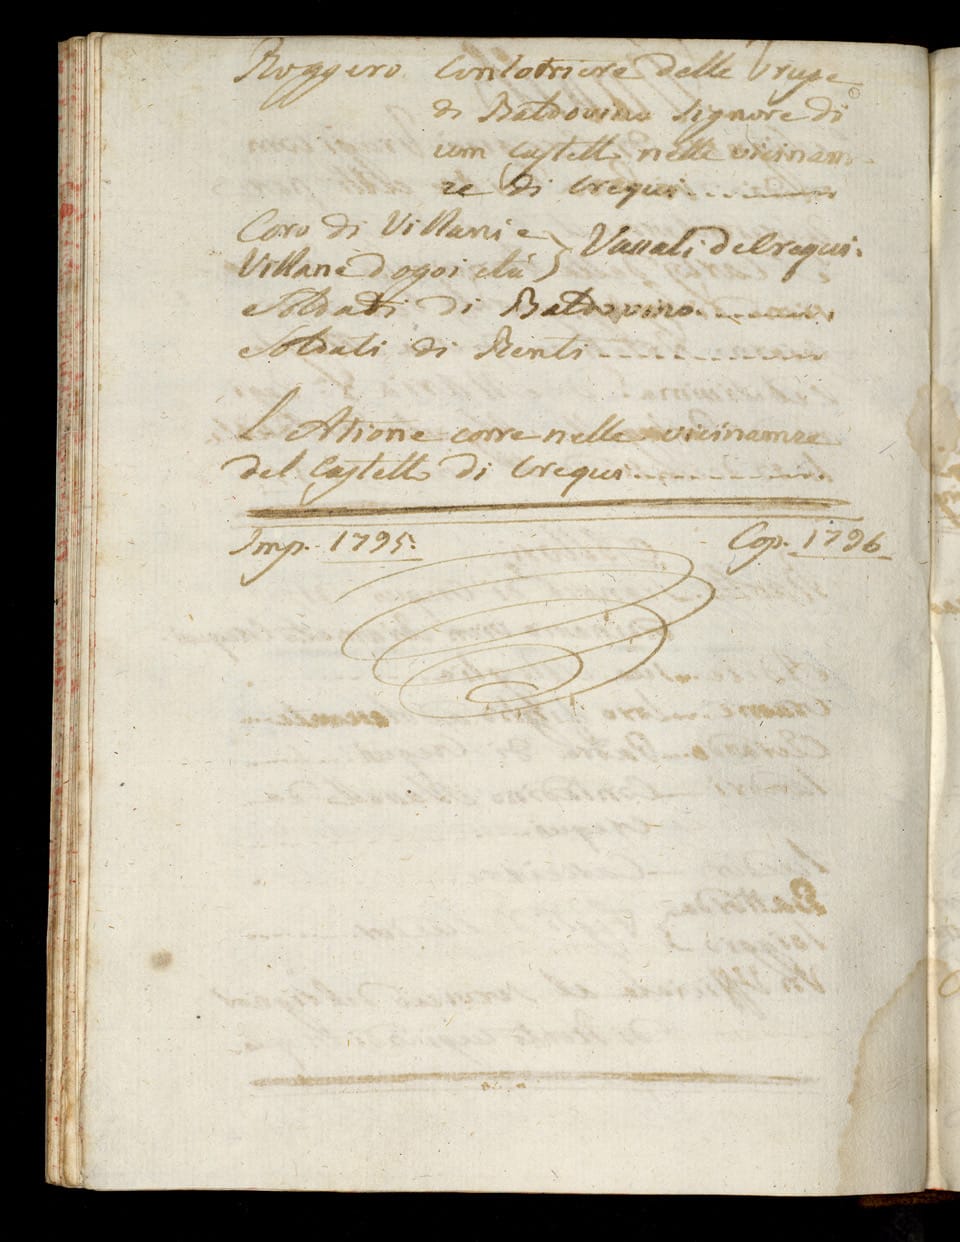 Ruggero Condottiere delle Trupe
di Baldovino Signore di
um Castello nelle vicinam-
ze di Crequi
Coro di Villani e } Vassali de Crequi.
Villane d'ogni età
Soldati di Baldovino
Soldati di Renti
L'Atione corre nelle vicinamze
del Castello di Crequi
Imp. 1795. Cop. 1796